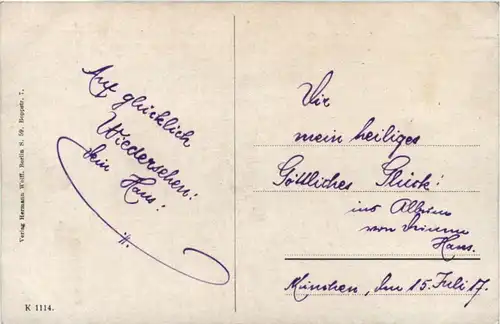 Auf glücklich
Wiedersehen!
Dein
Hans!
Dir
mein heiliges
Göttliches Glück!
ins Album
von Deinem
Hans.
München, den 15. Juli 17.
Verlag Hermann Wolff, Berlin S. 59, Boppstr. 7.
K 1114.